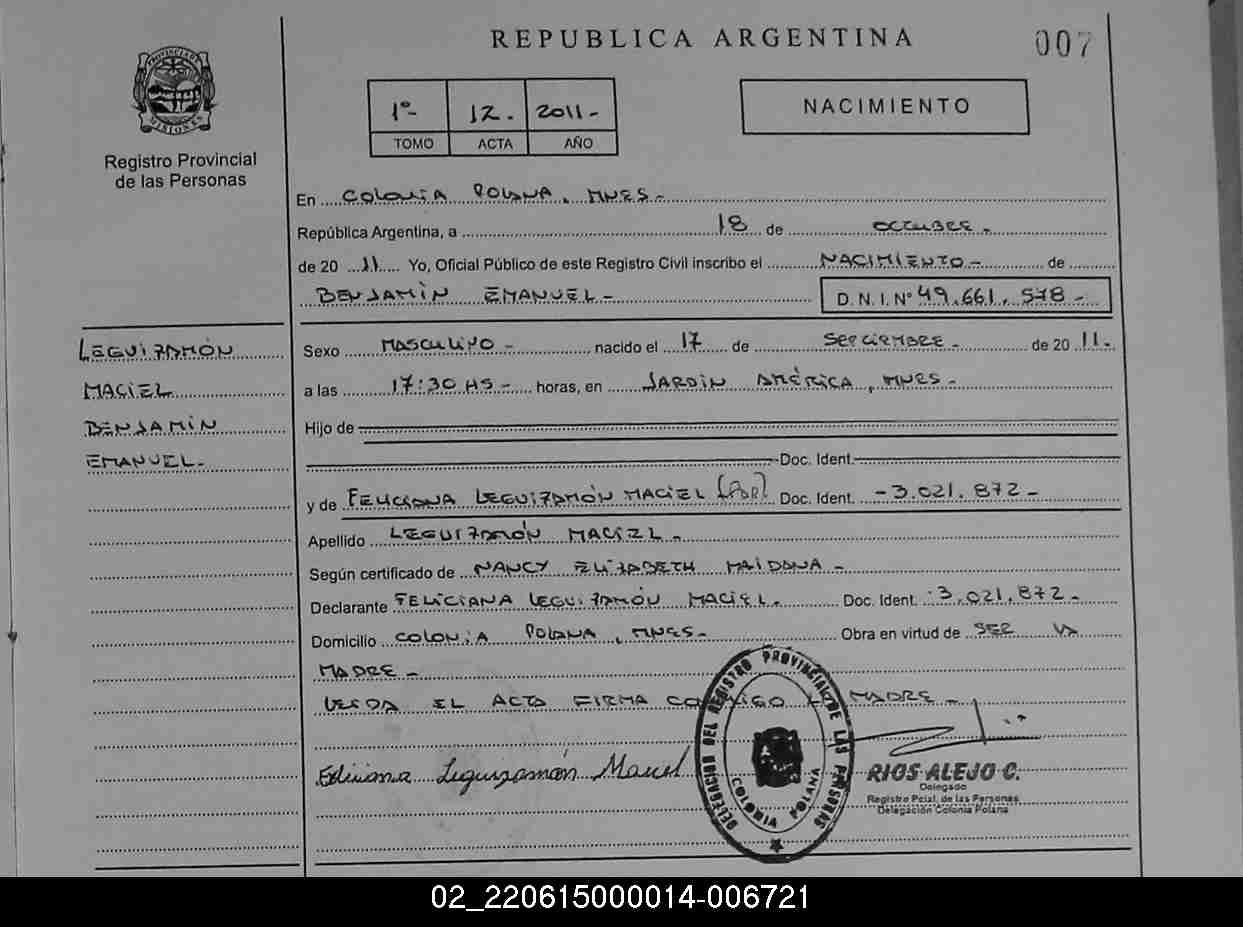 REPUBLICA ARGENTINA
007
PROVINCIA DE MISIONES
Registro Provincial
de las Personas
1º- 12. 2011-
TOMO ACTA AÑO
NACIMIENTO
En COLONIA POLANA, MNES-
República Argentina, a 18 de OCTUBRE-
de 20 11 Yo, Oficial Público de este Registro Civil inscribo el NACIMIENTO- de
BENJAMÍN EMANUEL- D.N.I. Nº 49.661.578-
LEGUIZAMÓN
MACIEL
BENJAMÍN
EMANUEL-
Sexo MASCULINO- nacido el 17 de SEPTIEMBRE- de 20 11-
a las 17:30 HS- horas, en JARDÍN AMÉRICA, MNES-
Hijo de
Doc. Ident.
y de FELICIANA LEGUIZAMÓN MACIEL (PAR) Doc. Ident. -3.021.872-
Apellido LEGUIZAMÓN MACIEL-
Según certificado de NANCY ELIZABETH MAIDANA-
Declarante FELICIANA LEGUIZAMÓN MACIEL- Doc. Ident. 3.021.872-
Domicilio COLONIA POLANA, MNES- Obra en virtud de SER LA
MADRE-
LEIDA EL ACTA FIRMA CONMIGO LA MADRE-
Feliciana Leguizamón Maciel
DELEGACION DEL REGISTRO PROVINCIAL DE LAS PERSONAS
COLONIA POLANA
RIOS ALEJO C.
Delegado
Registro Pcial. de las Personas
Delegación Colonia Polana
02_220615000014-006721